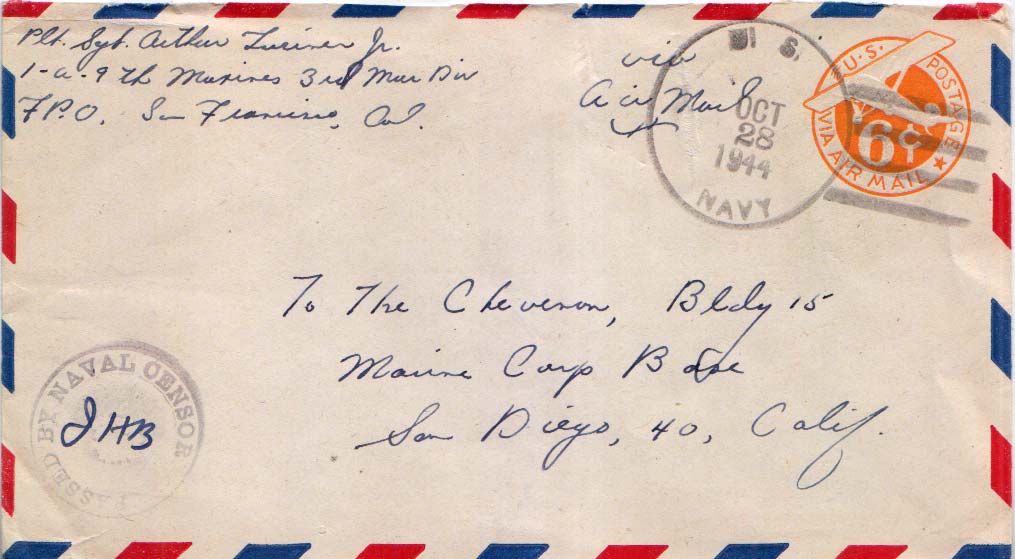 Plt. Sgt. Arthur Turiner Jr.
1-a-9th Marines 3rd Mar Div
F.P.O. San Francisco, Cal.
via
Air Mail
U. S.
OCT
28
1944
NAVY
U.S. POSTAGE
6¢
VIA AIR MAIL
To The Cheveron, Bldg 15
Marine Corp Base
San Diego, 40, Calif.
PASSED BY NAVAL CENSOR
JHB